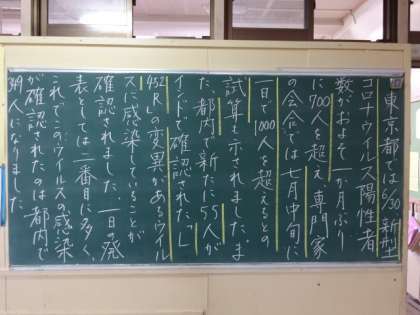 四 東京都では6/30新型
コロナウイルス陽性者
数がおよそ一か月ぶり
に700人を超え、専門家
の会合では七月中旬に
一日で1000人を超えるとの
試算も示されました。ま
た、都内で新たに55人が
インドで確認された「L
452R」の変異があるウイル
スに感染していることが
確認されました。一日の発
表としては二番目に多く、
これでこのウイルスの感染
が確認されたのは都内で
349人になりました。